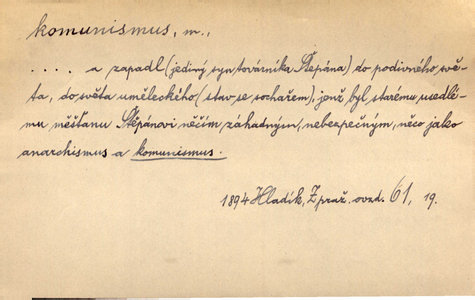 komunismus, m.,
.... a zapadl (jediný syn továrníka Štěpána) do podivného svě-
ta, do světa uměleckého (stav se sochařem), jenž byl starému usedlé-
mu měšťanu Štěpánovi něčím záhadným, nebezpečným, něco jako
anarchismus a komunismus.
1894 Hladík, Z praž. ovzd. 61, 19.